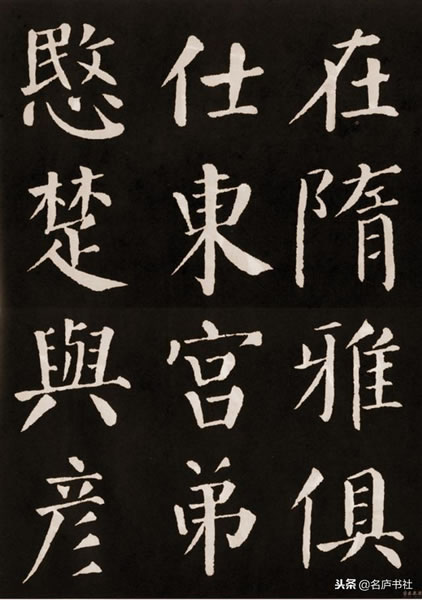 在隋雅俱
仕東宮弟
愍楚與彦
头条 @名庐书社